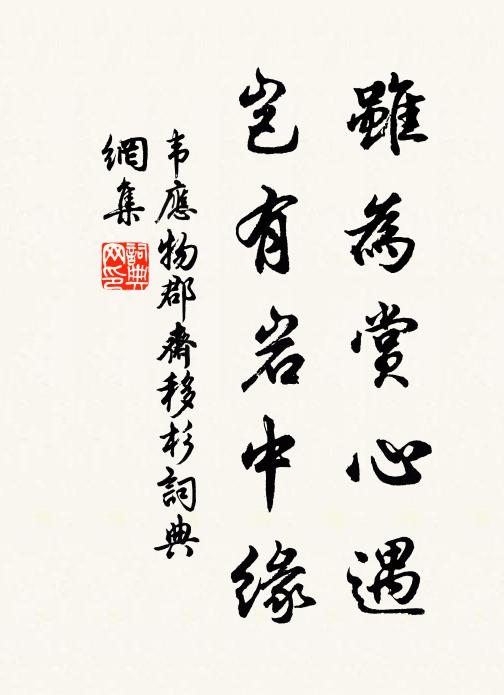 雖為賞心遇
豈有岩中緣
韦應物郡齋移杉詞典
網集
詞典
网印